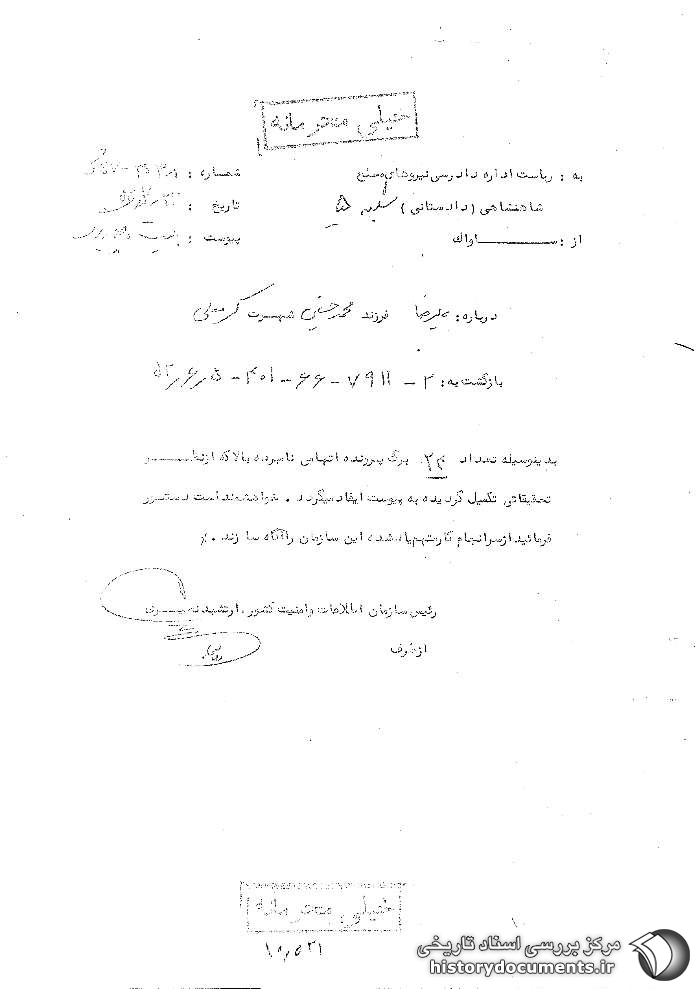 خیلی محرمانه
به : ریاست اداره دادرسی نیروهای مسلح
شماره :
شاهنشاهی ( دادستانی )
تاریخ :
از : ســـــــاواک
پیوست :
درباره : علیرضا فرزند محمدحسین شهرت کرمعلی
بازگشت به : ۲ – ۷۹۱۱ – ۶۶ – ۴۰۱ –
بدینوسیله تعداد ۲۳ برگ پرونده اتهامی نامبرده بالا که از نظـــــر
تحقیقاتی تکمیل گردیده به پیوست ایفاد میگردد . خواهشمند است دستور
فرمائید از سرانجام کار متهم یاد شده این سازمان را آگاه سازند . ٪
رئیس سازمان اطلاعات و امنیت کشور . ارتشبد نصیری
از طرف
خیلی محرمانه
مرکز بررسی اسناد تاریخی
historydocuments.ir